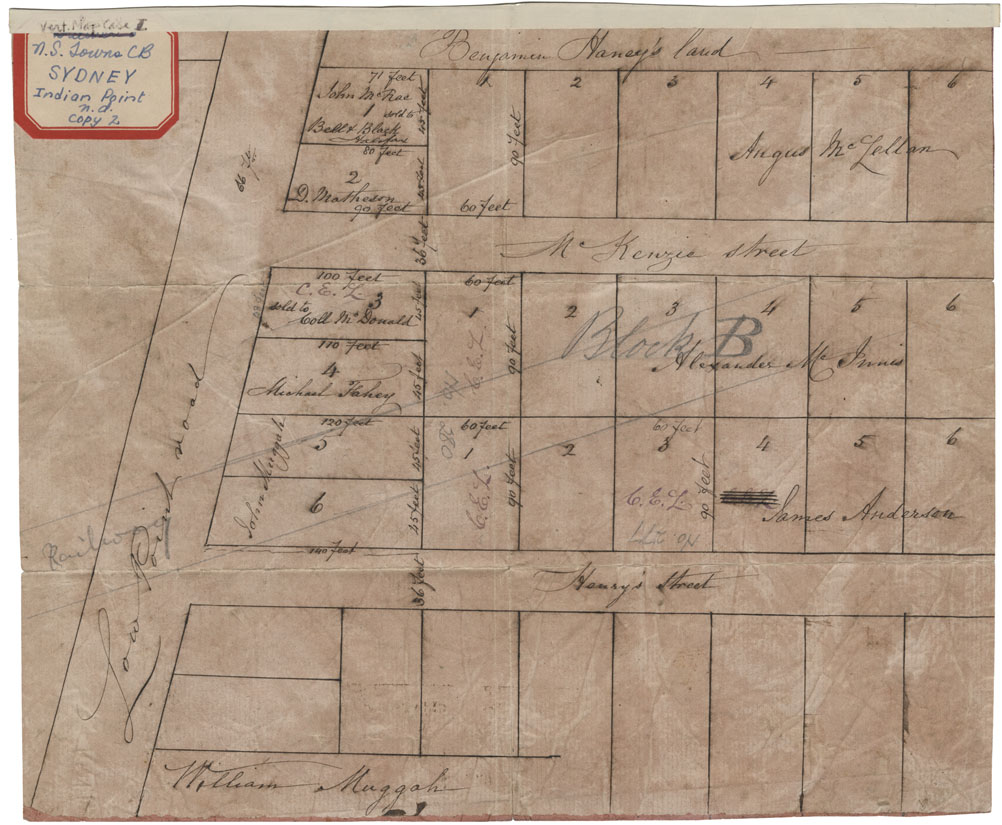 Vert. Map Case I.
N.S. Towns C.B
SYDNEY
Indian Point
n.d.
Copy 2
Benjamin Haney's land
71 feet
John McRae
1 sold to
Bell & Black
45 feet
80 feet
2
D. Matheson
90 feet
45 feet
66 ft
1 2 3 4 5 6
90 feet
60 feet
Angus McLellan
36 feet
McKenzie street
100 feet
C. E. L
3
sold to
Coll McDonald
45 feet
110 feet
4
Michael Fahey
45 feet
120 feet
5
John Muggah
45 feet
6
45 feet
140 feet
60 feet
1 2 3 4 5 6
C. E. L.
90 feet
Block B
Alexander McInnis
60 feet
60 feet
1 2 3 4 5 6
No 280
C. E. L.
90 feet
C. E. L.
90 feet
No 277
James Anderson
Low Point road
36 feet
Henry's street
William Muggah